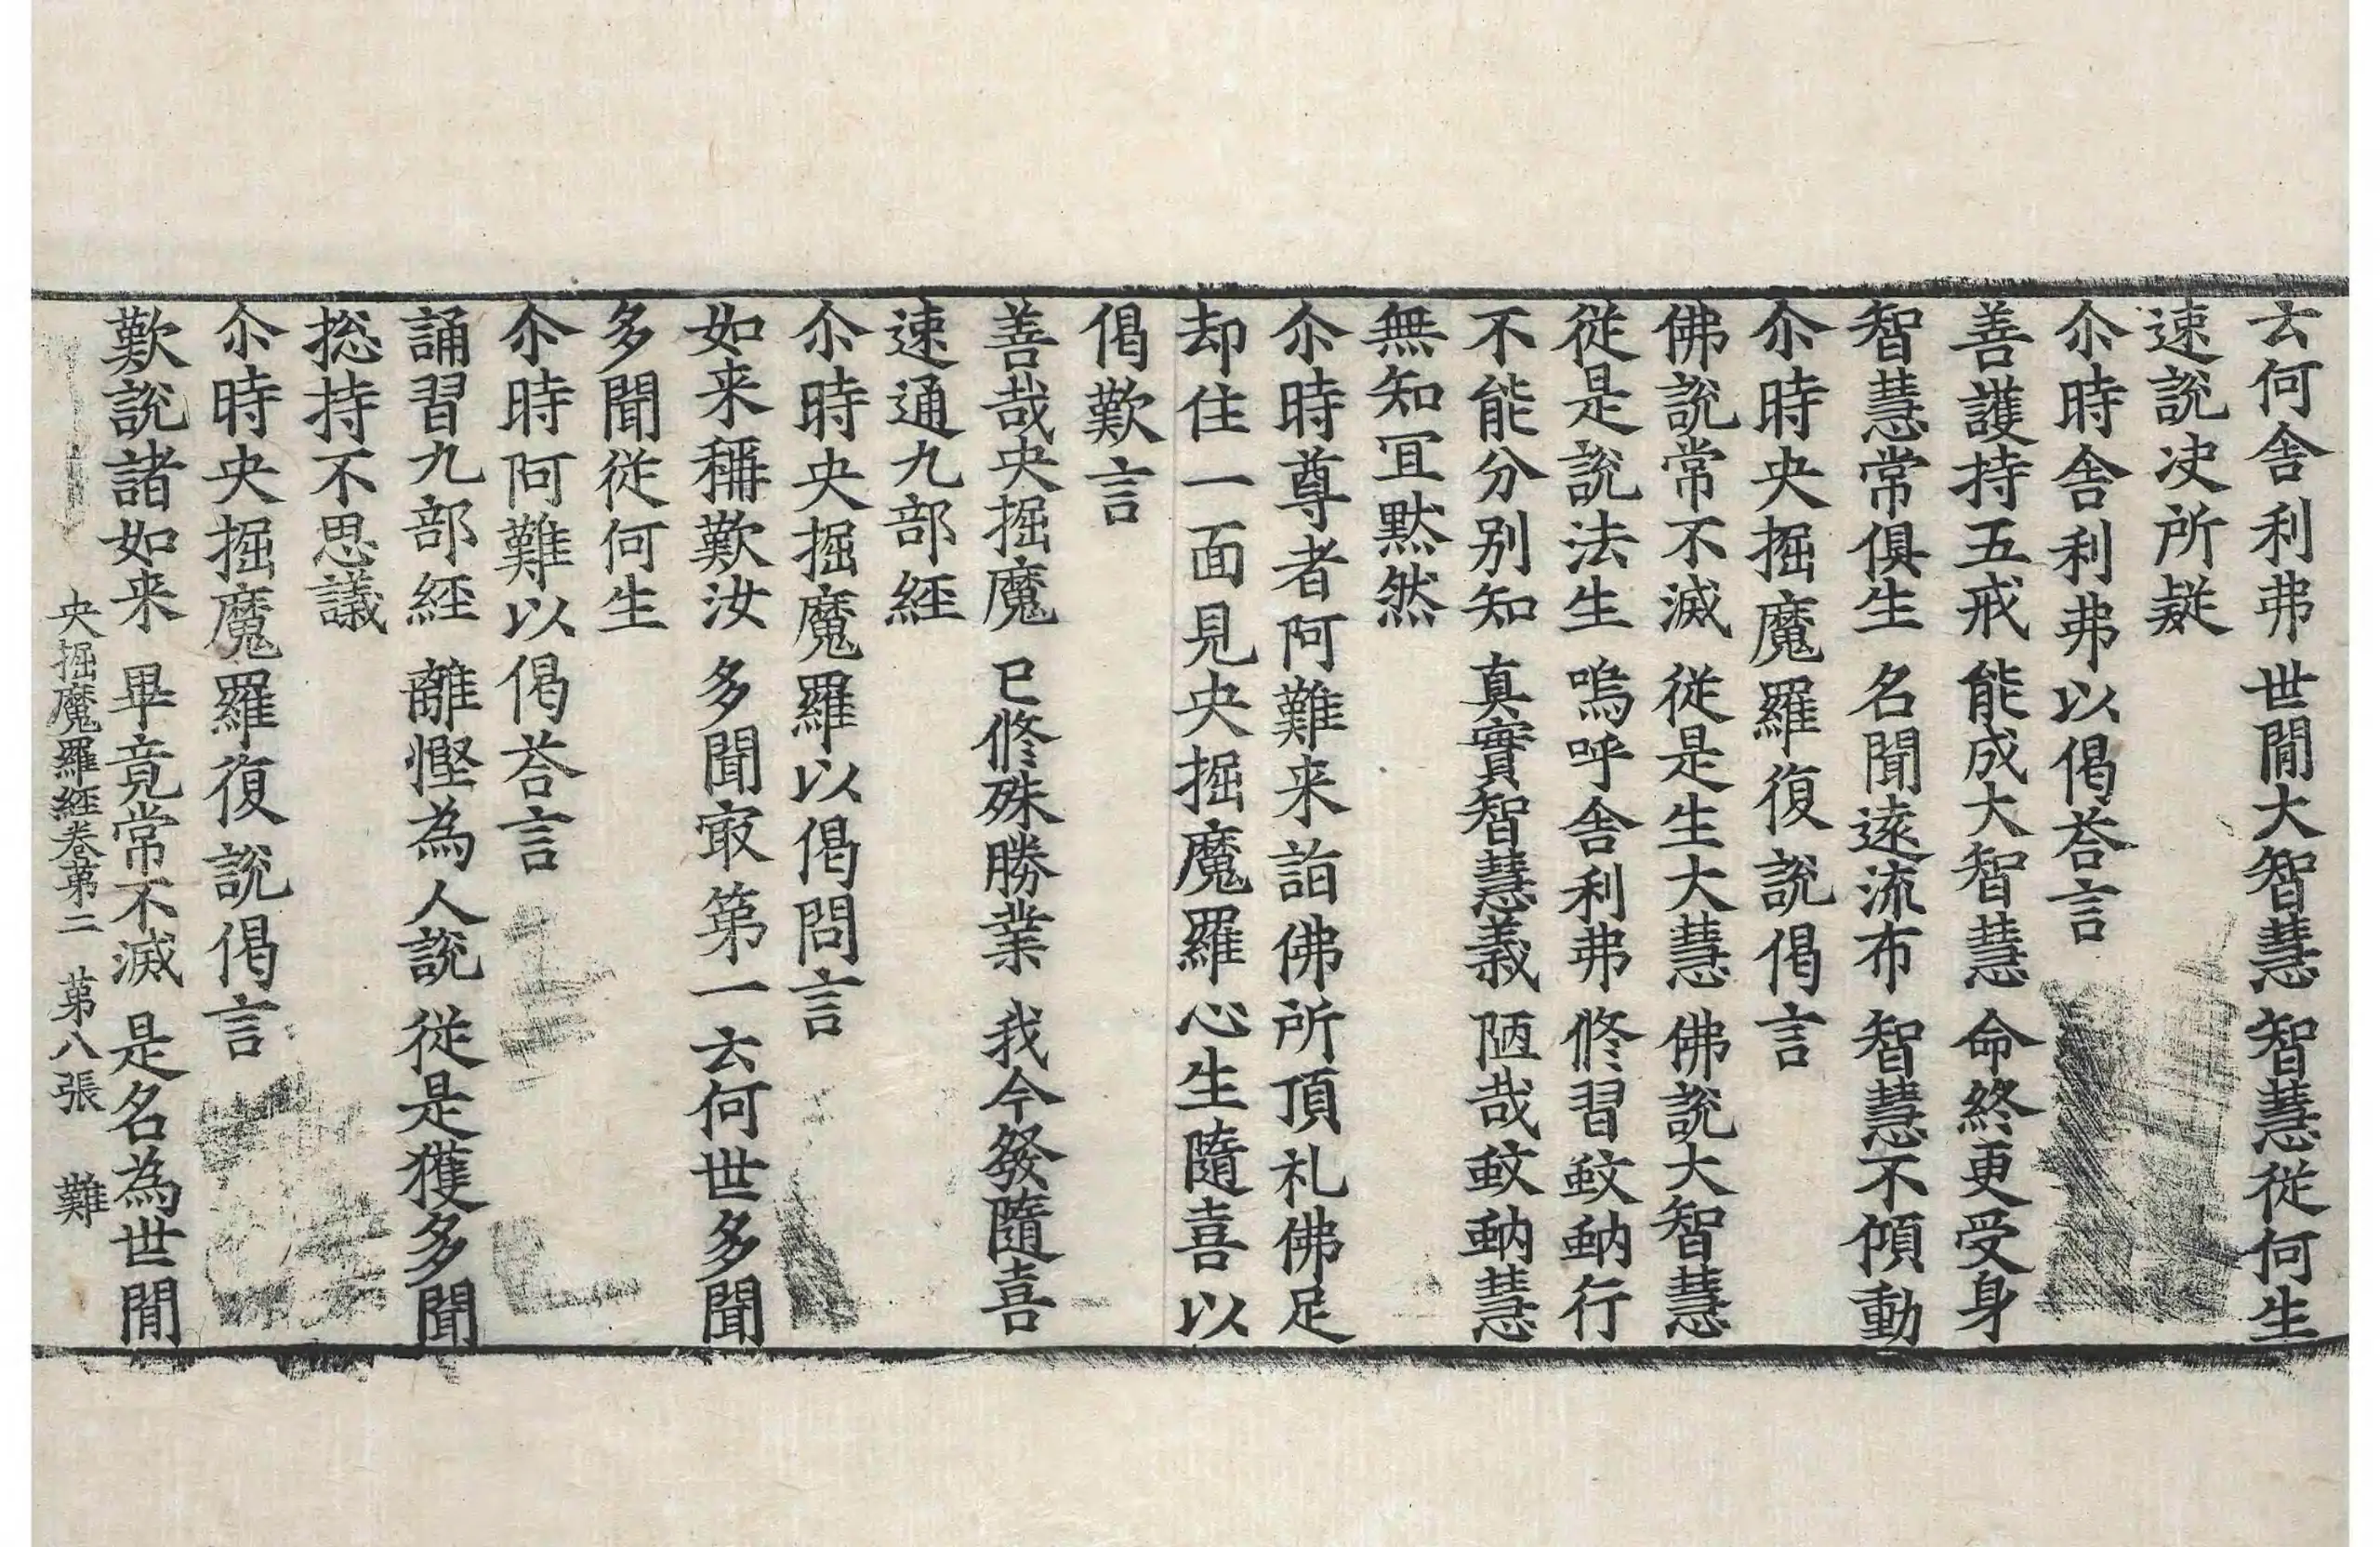 云何舍利弗 世閒大智慧 智慧從何生
速說决所疑
尒時舍利弗以偈荅言
善護持五戒 能成大智慧 命終更受身
智慧常俱生 名聞遠流布 智慧不傾動
尒時央掘魔羅復說偈言
佛說常不滅 從是生大慧 佛說大智慧
從是說法生 嗚呼舍利弗 修習蚊蚋行
不能分别知 真實智慧義 陋哉蚊蚋慧
無知冝默然
尒時尊者阿難来詣佛所頂礼佛足
却住一面見央掘魔羅心生隨喜以
偈歎言
善哉央掘魔 已修殊勝業 我今發隨喜
速通九部經
尒時央掘魔羅以偈問言
如来稱歎汝 多聞㝡第一 云何世多聞
多聞從何生
尒時阿難以偈荅言
誦習九部經 離慳為人說 從是獲多聞
捴持不思議
尒時央掘魔羅復說偈言
歎說諸如来 畢竟常不滅 是名為世閒
央掘魔羅經卷第二 第八張 難